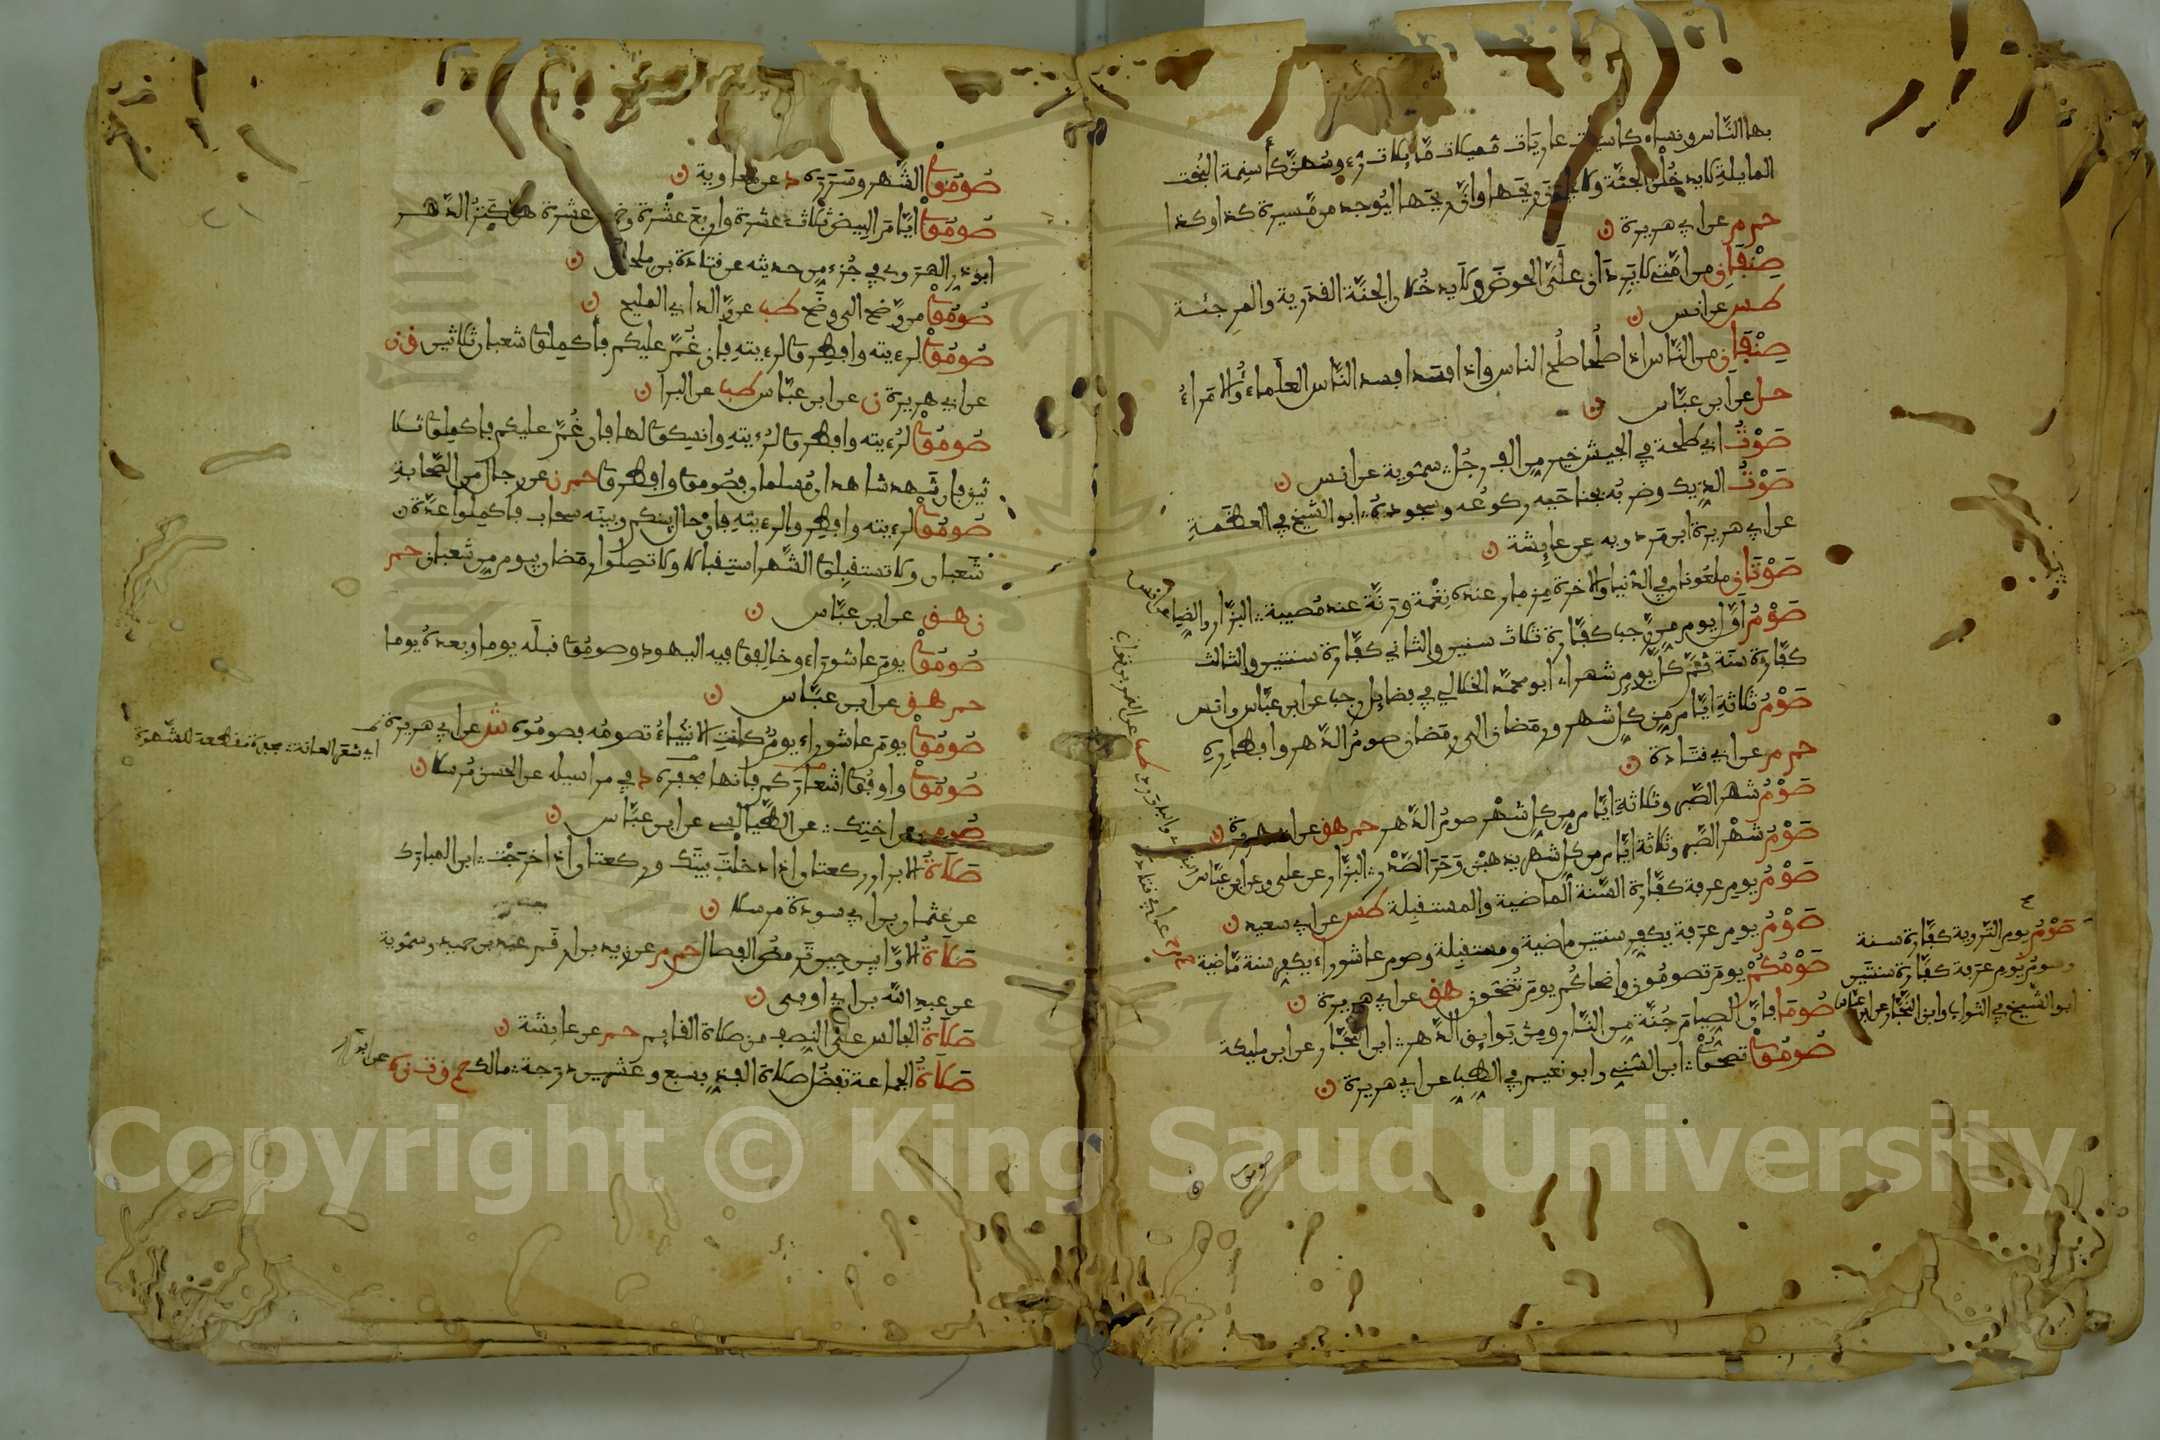 بها الناس ونساء كاسيات عاريات مميلات مايلات رءوسهن كأسنمة البخت
المايلة لا يدخلن الجنة ولا يجدن ريحها وان ريحها ليوجد من مسيرة كذا وكذا
حم م عن ابي هريرة ن
صنفان من امتي لا يردان على الحوض ولا يدخلان الجنة القدرية والمرجئة
طس عن انس ن
صنفان من الناس اذا صلحا صلح الناس واذا فسدا فسد الناس العلماء والامراء
حل عن ابن عباس ن
صوت ابي طلحة في الجيش خير من الف رجل سموية عن انس ن
صوت الديك وضربه بجناحيه ركوعه وسجوده ابو الشيخ في العظمة
عن ابي هريرة ابن مردويه عن عايشة ن
صوتان ملعونان في الدنيا والاخرة مزمار عند نعمة ورنة عند مصيبة البزار والضياء عن انس
صوم اول يوم من رجب كفارة ثلاث سنين والثاني كفارة سنتين والثالث
كفارة سنة ثم كل يوم شهرا ابو محمد الخلالي في فضايل رجب عن ابن عباس
صوم ثلاثة ايام من كل شهر ورمضان الى رمضان صوم الدهر وافطاره
حم م عن ابي قتادة ن
صوم شهر الصبر وثلاثة ايام من كل شهر صوم الدهر حم هق عن ابي هريرة ن
صوم شهر الصبر وثلاثة ايام من كل شهر يذهبن وحر الصدر البزار عن علي وعن ابن عباس
صوم يوم عرفة كفارة السنة الماضية والمستقبلة طس عن ابي سعيد ن
صوم يوم عرفة يكفر سنتين ماضية ومستقبلة وصوم عاشوراء يكفر سنة ماضية
حم م د عن ابي قتادة
صومكم يوم تصومون واضحاكم يوم تضحون هق عن ابي هريرة ن
صوما فان الصيام جنة من النار ومن بوايق الدهر ابن النجار عن ابن مليكة
صوموا تصحوا ابن السني وابو نعيم في الطب عن ابي هريرة ن
صوم يوم التروية كفارة سنة
وصوم يوم عرفة كفارة سنتين
ابو الشيخ في الثواب وابن النجار عن ابن عباس
صوموا
صوموا الشهر وسرره د عن معاوية ن
صوموا ايام البيض ثلاث عشرة واربع عشرة وخمس عشرة هن كنز الدهر
ابو ذر الهروي في جزء من حديثه عن قتادة بن ملحان ن
صوموا من وضح الى وضح طب عن والد ابي المليح ن
صوموا لرءيته وافطروا لرءيته فان غم عليكم فأكملوا شعبان ثلاثين ق ن
عن ابي هريرة ن عن ابن عباس طب عن البرا ن
صوموا لرءيته وافطروا لرءيته وانسكوا لها فان غم عليكم فاكملوا ثلا
ثين فان شهد شاهدان مسلمان فصوموا وافطروا حم ن عن رجال من الصحابة
صوموا لرءيته وافطروا لرءيته فان حال بينكم وبينه سحاب فاكملوا عدة
شعبان ولا تستقبلوا الشهر استقبالا ولا تصلوا رمضان بيوم من شعبان حم
ن هق عن ابن عباس ن
صوموا يوم عاشوراء وخالفوا فيه اليهود وصوموا قبله يوما وبعده يوما
حم هق عن ابن عباس ن
صوموا يوم عاشوراء يوم كانت الانبياء تصومه فصوموه ش عن ابي هريرة
صوموا واوفوا اشعاركم فانها مجفرة د في مراسيله عن الحسن مرسلا ن
اي شعر العانة مجفرة مقطعة للشهوة
صومي عن اختك الطيالسي عن ابن عباس ن
صلاة الابرار ركعتان اذا دخلت بيتك وركعتان اذا خرجت ابن المبارك
عن عثمان بن ابي سودة مرسلا ن
صلاة الاوابين حين ترمض الفصال حم م عن زيد بن ارقم عبد بن حميد وسموية
عن عبد الله بن ابي اوفى ن
صلاة الجالس على النصف من صلاة القايم حم عن عايشة ن
صلاة الجماعة تفضل صلاة الفذ بسبع وعشرين درجة مالك حم ق ت ن ه عن ابن
Copyright © King Saud University